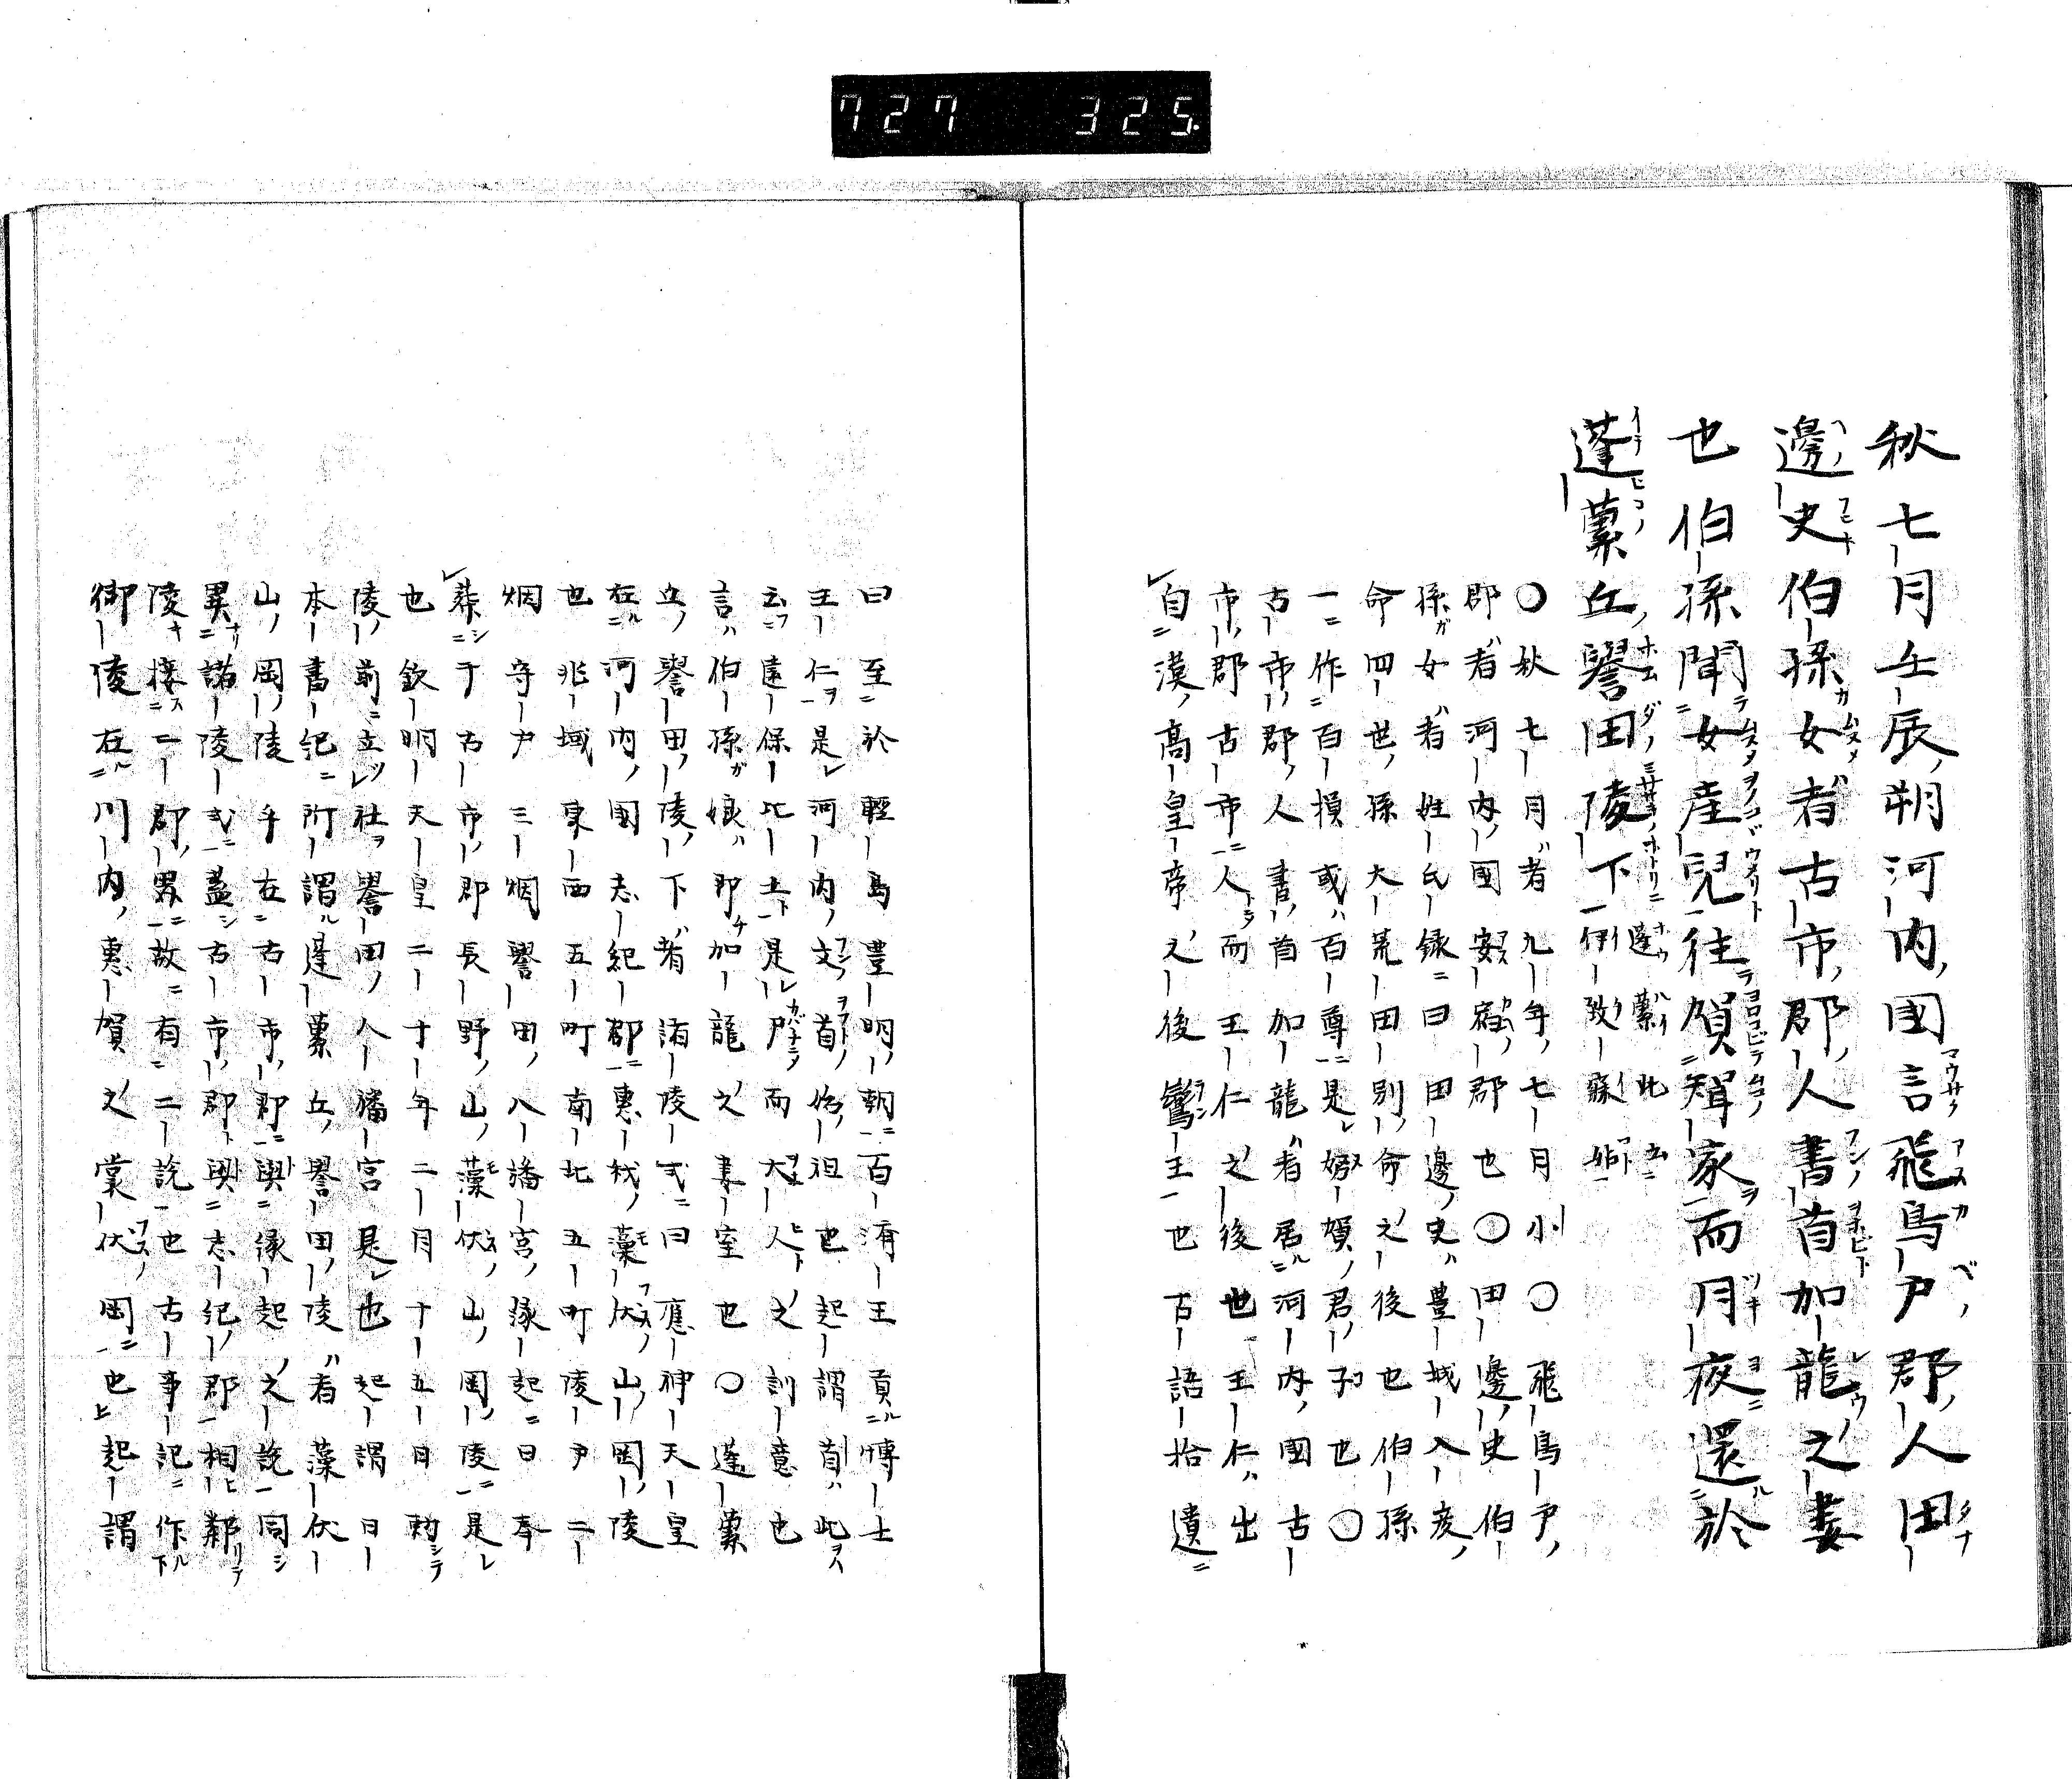 727 325
秋七月壬辰朔河内國言飛鳥戸郡人田
邊史伯孫女者古市郡人書首加龍之妻
也伯孫聞女産兒往賀聟家而月夜還於
蓬蔂丘譽田陵下 蓬蔂此云伊致寐姤
○秋七月者九年七月小○飛鳥戸
郡者河内國安宿郡也○田邊史伯
孫女者姓氏録曰田邊史豊城入彦
命四世孫大荒田別命之後也伯孫
一作百損或百尊是努賀君子也○
古市郡人書首加龍者居河内國古
市郡古市人而王仁之後也王仁出
自漢高皇帝之後鸞王也古語拾遺
曰至於輕島豊明朝百済王貢博士
王仁是河内文首始祖也起謂首此
云遠保比土是尸而大人之訓意也
言伯孫娘即加龍之妻室也○蓬蔂
丘譽田陵下者諸陵式曰應神天皇
在河内國志紀郡惠我藻伏山岡陵
也兆域東西五町南北五町陵戸二
烟守戸三烟譽田八幡宮縁起曰奉
葬于古市郡長野山藻伏山岡陵是
也欽明天皇二十年二月十五日勅
陵前立社譽田八幡宮是也起謂日
本書紀所謂蓬蔂丘譽田陵者藻伏
山岡陵乎在古市郡與縁起之説同
異諸陵式蓋古市郡與志紀郡相鄰
陵接二郡界故有二説也古事記作
御陵在川内惠賀之裳伏岡也起謂